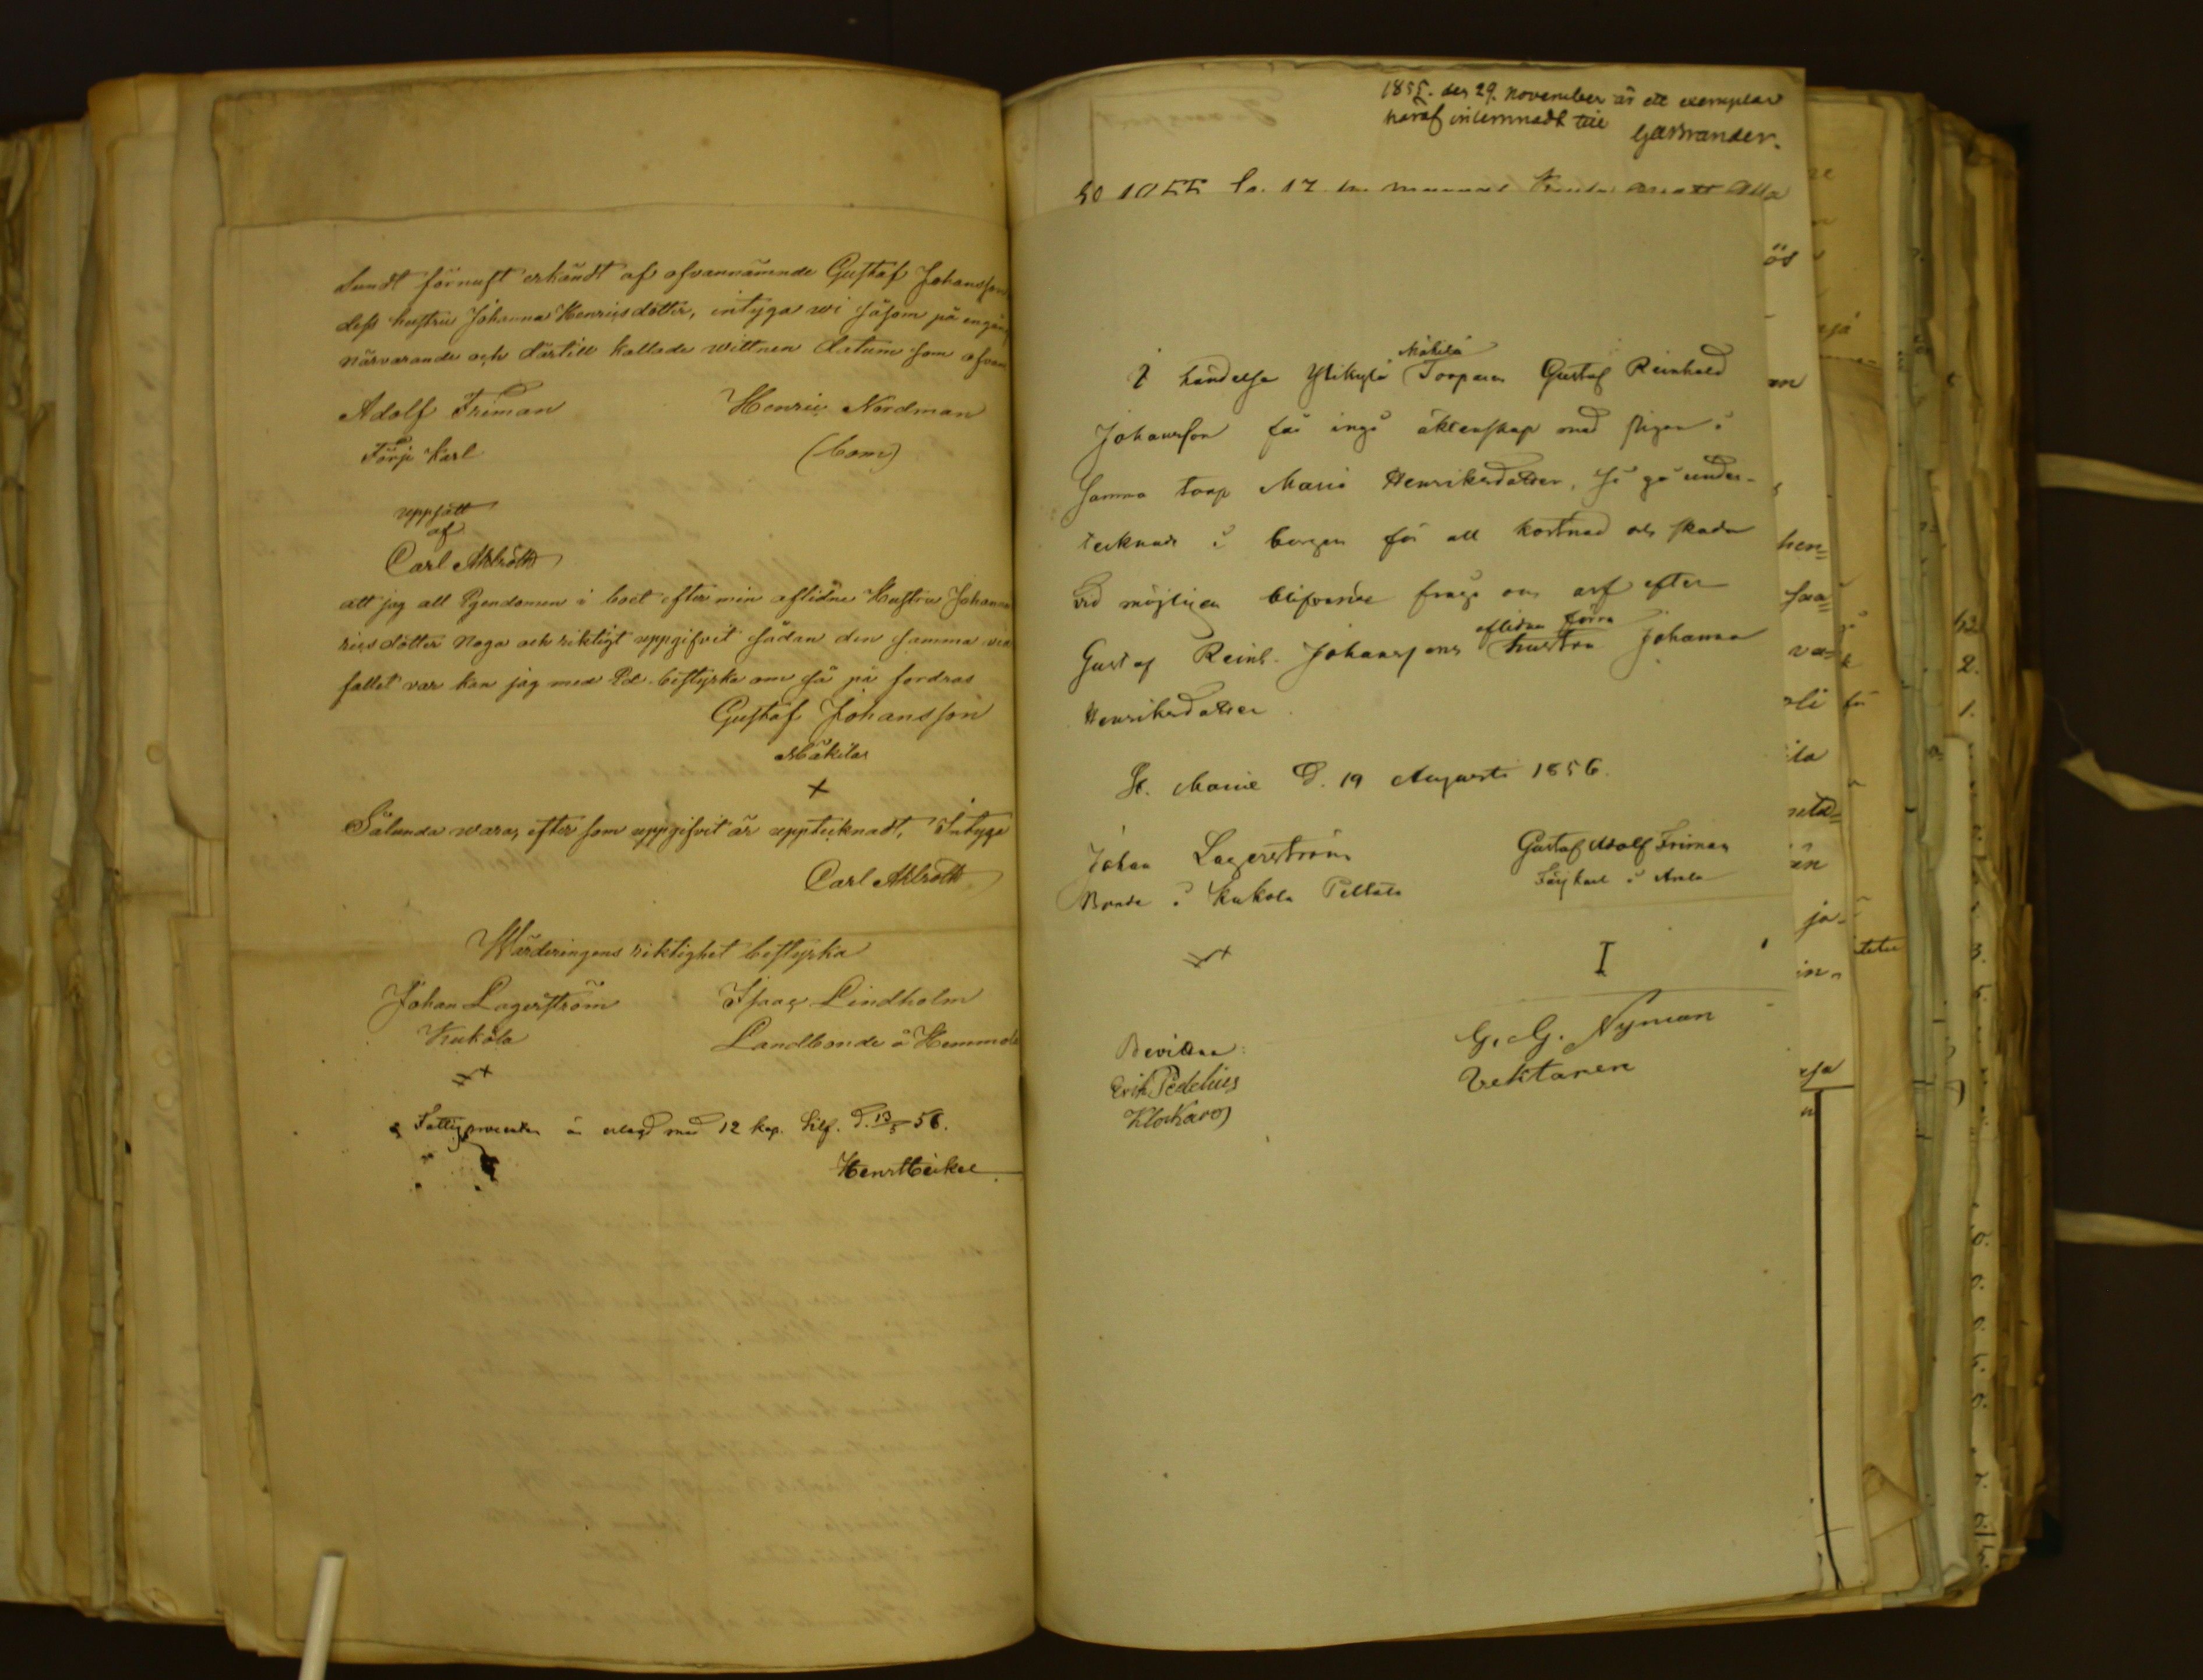 Sundt förnuft erkändt af ofvannämnde Gustaf Johansson
dess hustru Johanna Henricsdotter, intyga wi såsom på engång
närvarande och därtill kallade wittnen datum som ofvan
Adolf Friman Henric Nordman
Färje Karl
uppsatt
af
Carl Ahlroth
att jag all Egendomen i boet efter min aflidne Hustru Johanna
ricsdotter Noga och riktigt uppgifvit sådan den samma vid
fallet var kan jag med Ed bestyrka om så på fordras
Gustaf Johansson
Mäkilas
x
Sålunda wara, efter som uppgifvit är upptecknadt, Intyga
Carl Ahlroth
Wärderingens riktighet bestyrka
Johan Lagerström Isaac Lindholm
Kukola Landbonde å
är erlagd med 12 kop. Silf. d. 13/5 56.
Henr Heikel
1855. den 29. November är ett exemplar
häraf inlemnadt till
GABrander.
I händelse Ylikylä Mäkilä Torparen Gustaf Reinhold
Johansson får ingå äktenskap med pigan i
samma torp Maria Henriksdotter, så gå under-
tecknade i borgen för all kostnad och skada
vid möjligen blifvande fråga om arf efter
Gustaf Reinh. Johanssons aflidna förra hustru Johanna
Henriksdotter
St. Marie d. 19 Augusti 1856.
Johan Lagerström Gustaf Adolf Friman
Bonde i Kukola Peltala Färjkarl i
I
Bevittna:
G. G. Nyman
Erik Pedelius
Klockare